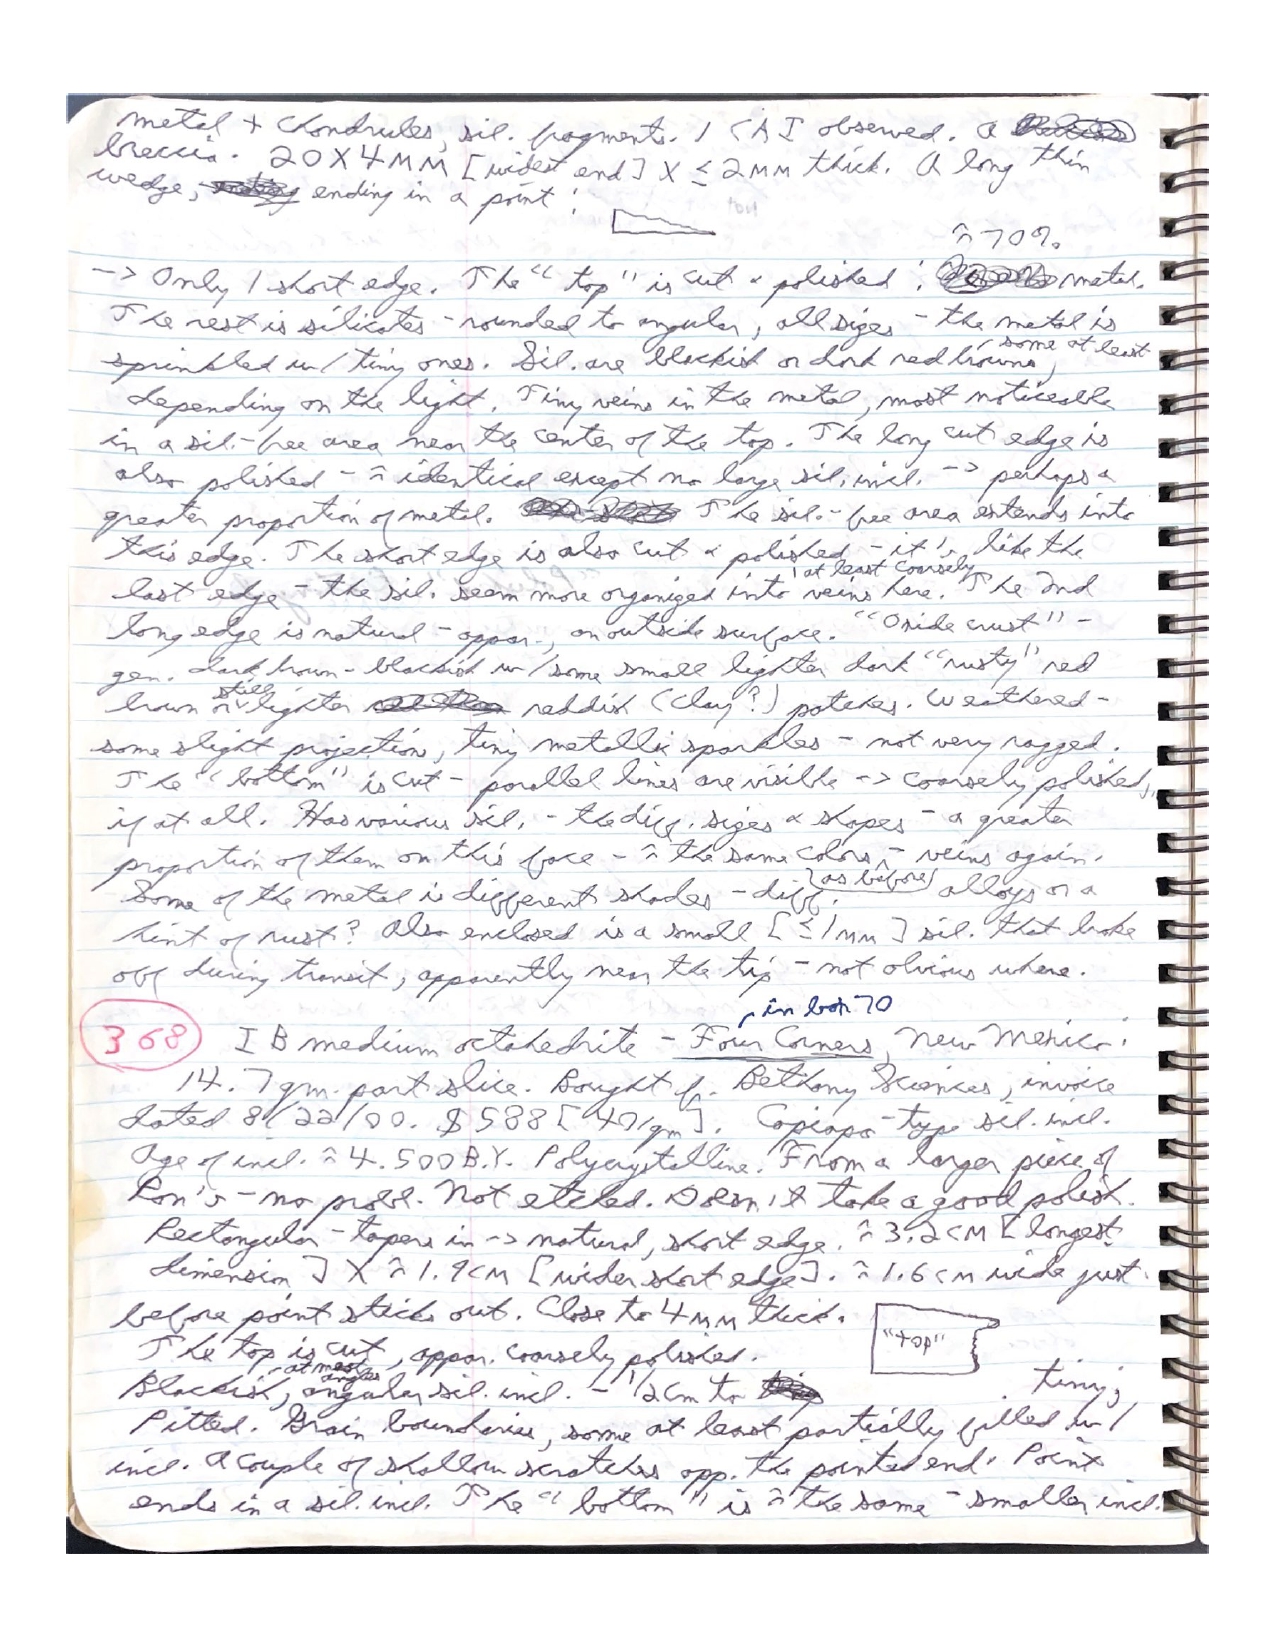 metal + chondrules, sil. fragments. 1 CAI observed. A
breccia. 20X4MM [widest end] X ≤ 2MM thick. A long thin
wedge, ending in a point:
≈70%
-> Only 1 short edge. The "top" is cut & polished: metal.
The rest is silicates - rounded to angular, all sizes - the metal is
sprinkled w/ tiny ones. Sil. are blackish or dark red browns, some at least
depending on the light. Tiny veins in the metal, most noticeable
in a sil.-free area near the center of the top. The long cut edge is
also polished - ≈ identical except no large sil. incl. -> perhaps a
greater proportion of metal. The sil.-free area extends into
this edge. The short edge is also cut & polished - it's like the
last edge - the sil. seem more organized into veins here. at least coarsely The 2nd
long edge is natural - appar., an outside surface. "Oxide crust" -
gen. dark brown - blackish w/ some small lighter dark "rusty" red
brown & still lighter reddish (clay?) patches. Weathered -
some slight projections, tiny metallic sparkles - not very ragged.
The "bottom" is cut - parallel lines are visible -> coarsely polished,
if at all. Has various sil. - the diff. sizes & shapes - a greater
proportion of them on this face - ≈ the same colors - veins again.
Some of the metal is different shades - diff. (as before) alloys or a
hint of rust? Also enclosed is a small [≤1mm] sil. that broke
off during transit, apparently near the tip - not obvious where.
in box 70
368 IB medium octahedrite - Four Corners, New Mexico:
14.7gm. part slice. Bought f. Bethany Sciences, invoice
dated 8/22/00. $588 [40/gm]. Copiapo-type sil. incl.
Age of incl. ≈ 4.500 B.Y. Polycrystalline. From a larger piece of
Ron's - no prob. Not etched. Doesn't take a good polish.
Rectangular - tapers in -> natural, short edge. ≈3.2cm [longest
dimension] X ≈1.9cm [wider short edge]. ≈1.6cm wide just
before point sticks out. Close to 4MM thick.
"top"
The top is cut, appar. coarsely polished.
at most
Blackish, angular sil. incl. - 1/2cm to tiny,
Pitted. Grain boundaries, some at least partially filled w/
incl. A couple of shallow scratches opp. the pointed end. Point
ends in a sil. incl. The "bottom" is ≈ the same - smaller incl.